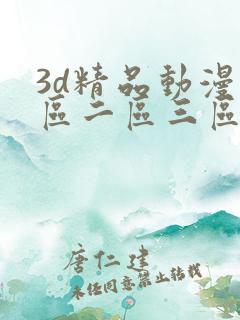 3d精品動漫
區二區三區
唐仁建
未任同意禁止转载